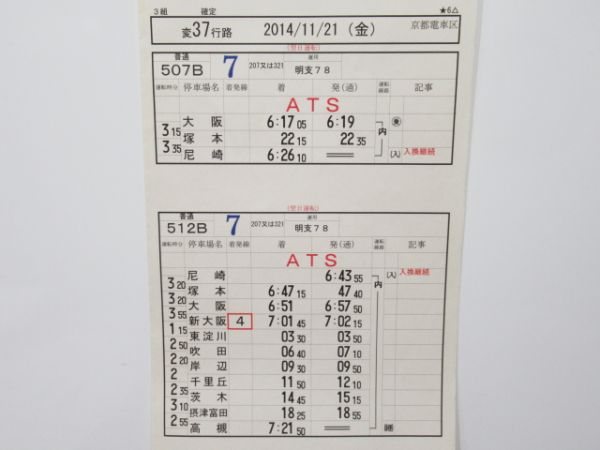 3組 確定 ★6△
変37行路 2014/11/21 (金) 京都電車区
(翌日運転)
普通 運用
507B 7 207又は321 明支78
運転時分 停車場名 着発線 着 発(通) 運転線路 記事
ATS
大阪 6:17 05 6:19
3 15
塚本 22 15 22 35 内
3 35
尼崎 6:26 10 ═ (入) 入換継続
(翌日運転)
普通 運用
512B 7 207又は321 明支78
運転時分 停車場名 着発線 着 発(通) 運転線路 記事
ATS
尼崎 6:43 55 (入) 入換継続
3 20
塚本 6:47 15 47 40 内
3 20
大阪 6:51 6:57 50
3 55
新大阪 4 7:01 45 7:02 15
1 15
東淀川 03 30 03 50
2 50
吹田 06 40 07 10
2 20
岸辺 09 30 09 50
2
千里丘 11 50 12 10
2 35
茨木 14 45 15 15
3 10
摂津富田 18 25 18 55
2 55
高槻 7:21 50 ═